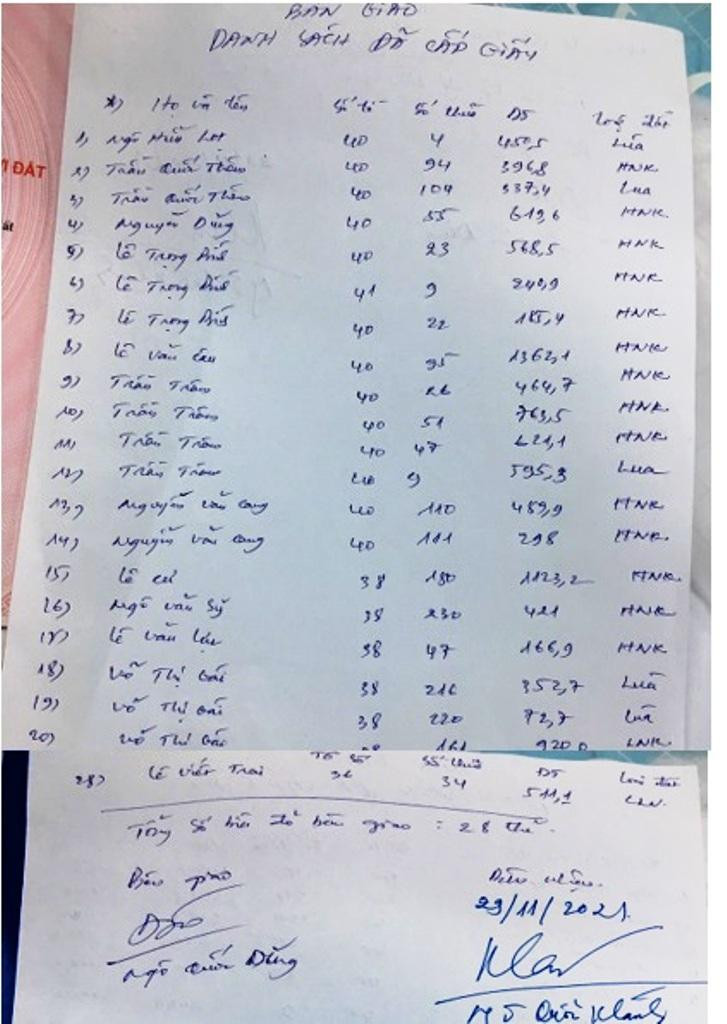 BÀN GIAO
DANH SÁCH ĐÃ CẤP GIẤY
ĐẤT
*) Họ và tên Số tờ Số thửa DT Loại đất
1) Ngô Hữu 40 4 450,5 Lúa
2) Trần Quốc Thêm 40 94 396,8 HNK
3) Trần Quốc Thêm 40 104 337,4 Lúa
4) Nguyễn Dũng 40 55 619,6 HNK
5) Lê Trọng 40 23 568,5 HNK
6) Lê Trọng 41 9 240,9 HNK
7) Lê Trọng 40 22 185,4 HNK
8) Lê Văn 40 95 1362,1 HNK
9) Trần Trâm 40 26 464,7 HNK
10) Trần Trâm 40 51 763,5 HNK
11) Trần Trâm 40 47 621,1 HNK
12) Trần Trâm 40 9 595,3 Lúa
13) Nguyễn Văn Cang 40 110 489,9 HNK
14) Nguyễn Văn Cang 40 111 298 HNK
15) Lê Cư 38 180 1123,2 HNK
16) Ngô Văn Sỹ 38 230 421 HNK
17) Lê Văn 38 47 166,9 HNK
18) Võ Thị Gái 38 216 352,7 Lúa
19) Võ Thị Gái 38 220 72,7 Lúa
20) Võ Thị Gái 38 161 920,0 LNK
Tờ số Số thửa DT Loại đất
28) Lê Viết Trai 36 34 511,1
Tổng số bìa đỏ bàn giao : 28 thẻ.
Bên giao Bên nhận.
29/11/2021
Ngô Quốc Dũng
Quốc Khánh